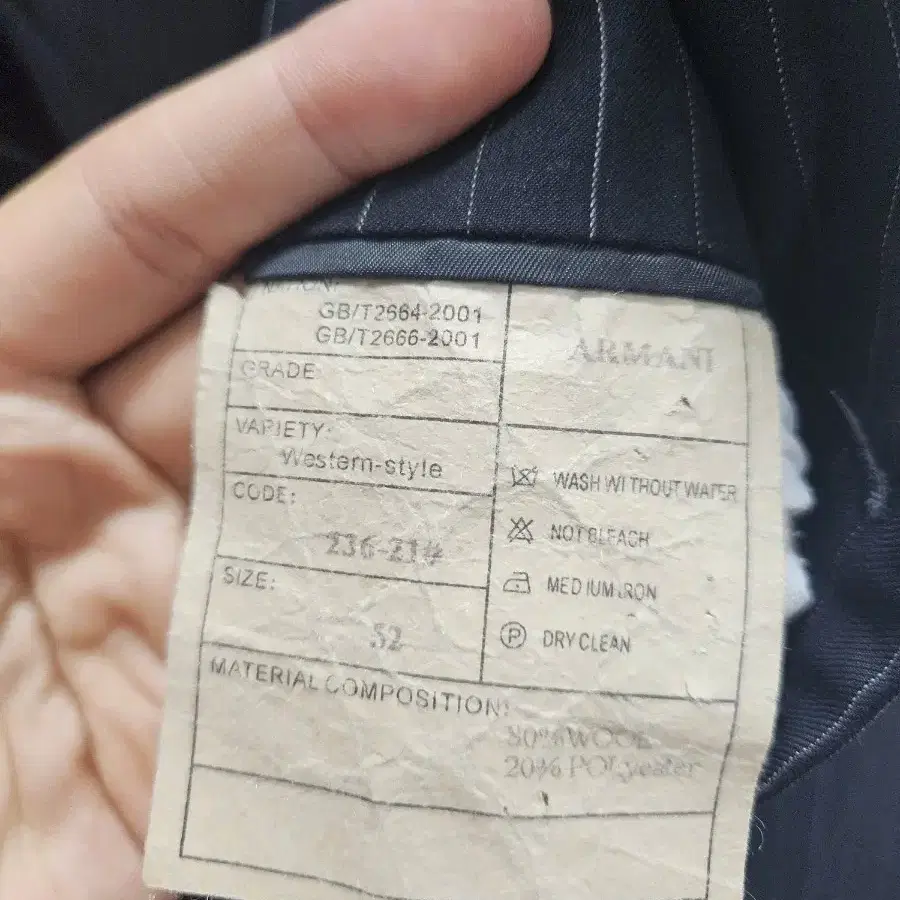 GB/T2664-2001
GB/T2666-2001
GRADE
VARIETY:
Western-style
CODE:
236-21#
SIZE:
52
ARMANI
WASH WITHOUT WATER
NOT BLEACH
MEDIUM IRON
P DRY CLEAN
MATERIAL COMPOSITION:
80%WOOL
20% POLyeater